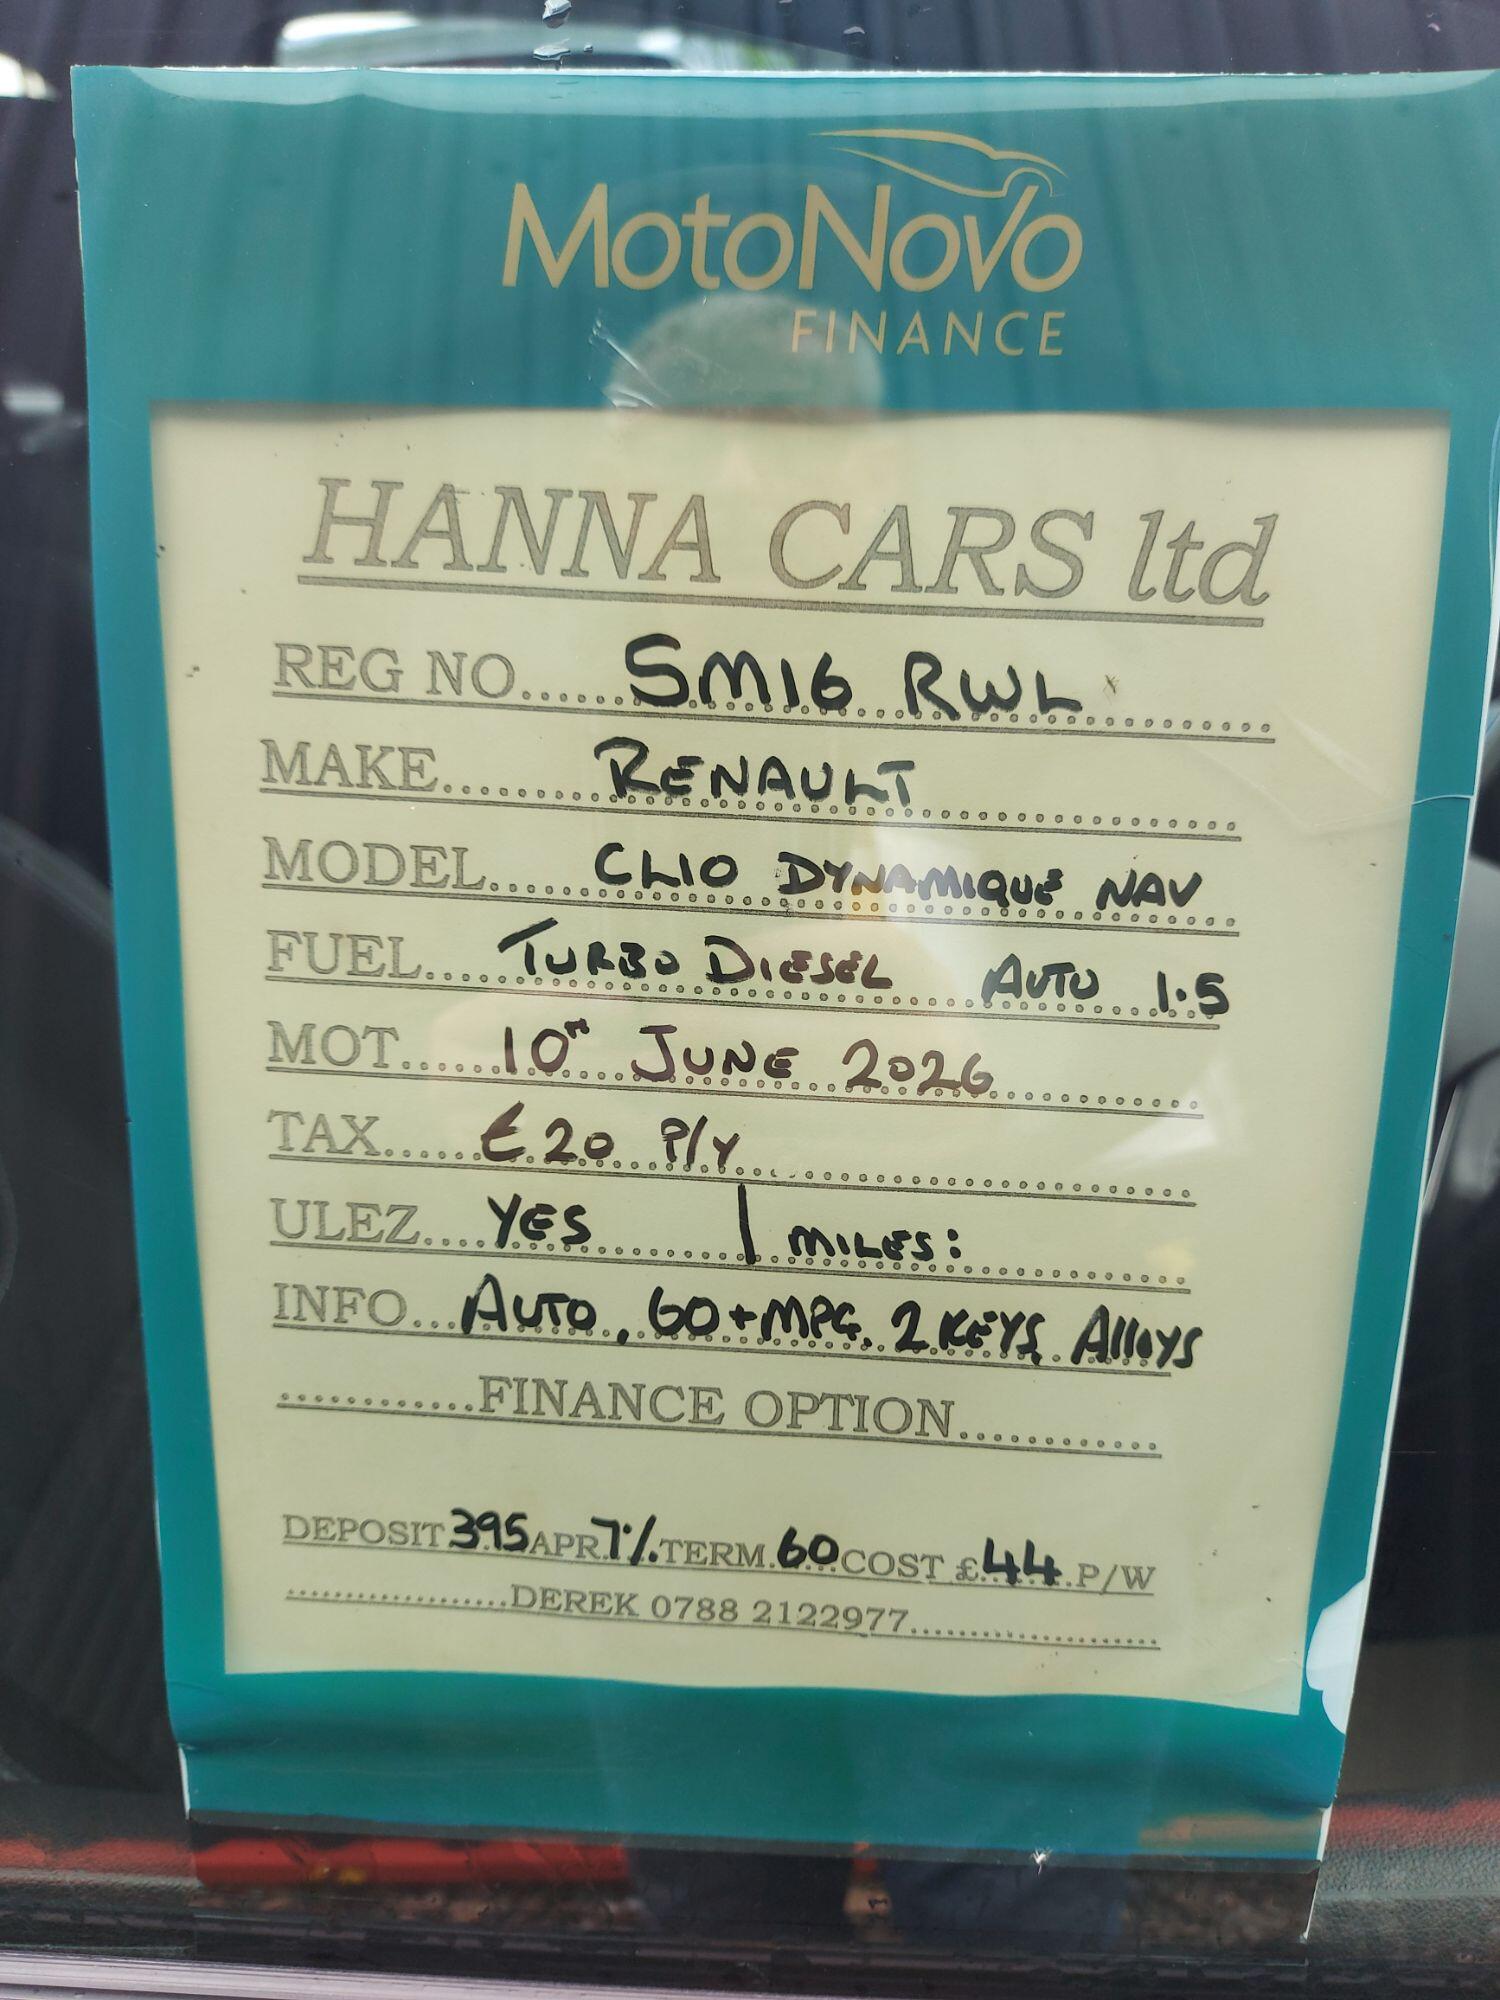 MOTONOVO
FINANCE
HANNA CARS ltd
REG NO...... SM16 RWL
MAKE......... RENAULT
MODEL...... CLIO DYNAMIQUE NAV
FUEL..... TURBO DIESEL AUTO 1.5
MOT...... 10TH JUNE 2026
TAX...... £20 P/Y
ULEZ.... YES | MILES:
INFO... AUTO, 60+MPG. 2 KEYS, Alloys
............FINANCE OPTION............
DEPOSIT 395 APR 7% TERM 60 COST £44 P/W
..................DEREK 0788 2122977....................